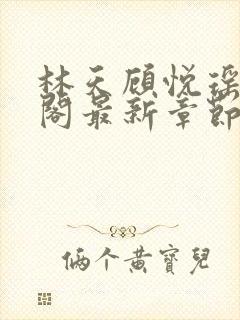 林天顾悦瑶
阁最新章節
俩个黄寶兒